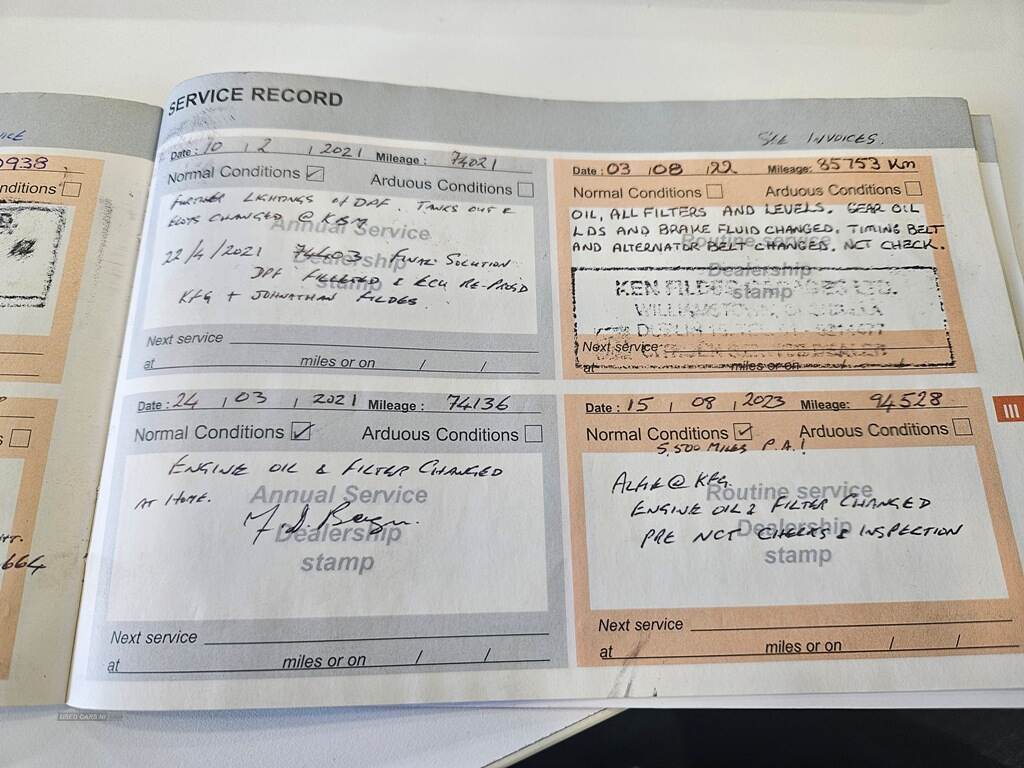 SERVICE RECORD
Date : 10 / 2 / 2021 Mileage : 74021
Normal Conditions ✓ Arduous Conditions
FURTHER LIGHTINGS OF DPF. TANKS OUT &
CHANGED @ KFG
Annual Service
22/4/2021 74403 FINAL SOLUTION
Dealership
DPF & ECU RE-PROGD
stamp
KFG + JOHNATHAN FILDES.
Next service
at miles or on / /
SEE INVOICES
Date : 03 / 08 / 22 Mileage: 85753 Km
Normal Conditions Arduous Conditions
OIL, ALL FILTERS AND LEVELS. GEAR OIL
LDS AND BRAKE FLUID CHANGED. TIMING BELT
AND ALTERNATOR BELT CHANGED. NCT CHECK.
Routine service
Dealership
stamp
KEN FILDES GARAGES LTD.
WILLIAMSTOWN,
DUBLIN
Next service
CITROEN SERVICE DEALER
at miles or on
Date : 24 / 03 / 2021 Mileage : 74136
Normal Conditions ✓ Arduous Conditions
ENGINE OIL & FILTER CHANGED
AT HOME.
Annual Service
Dealership
stamp
Next service
at miles or on / /
Date : 15 / 08 / 2023 Mileage: 94528
Normal Conditions ✓ Arduous Conditions
5,500 MILES P.A!
ALFIE @ KFG.
Routine service
ENGINE OIL & FILTER CHANGED
Dealership
PRE NCT CHECKS & INSPECTION
stamp
Next service
at miles or on / /
III
0938
nditions
664
USED CARS NI